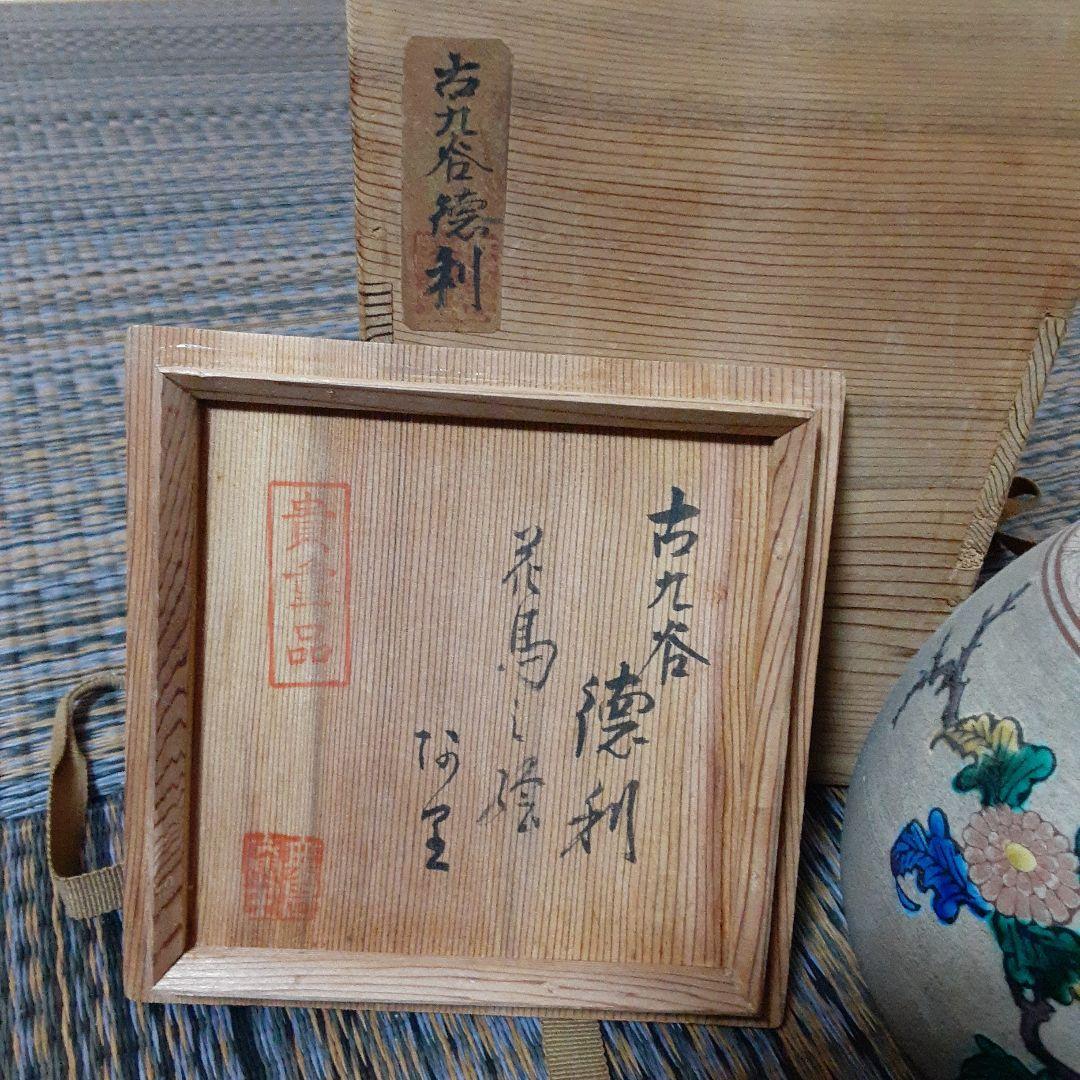 古九谷德利
古九谷
德利
花鳥之絵
阿里
貴重品